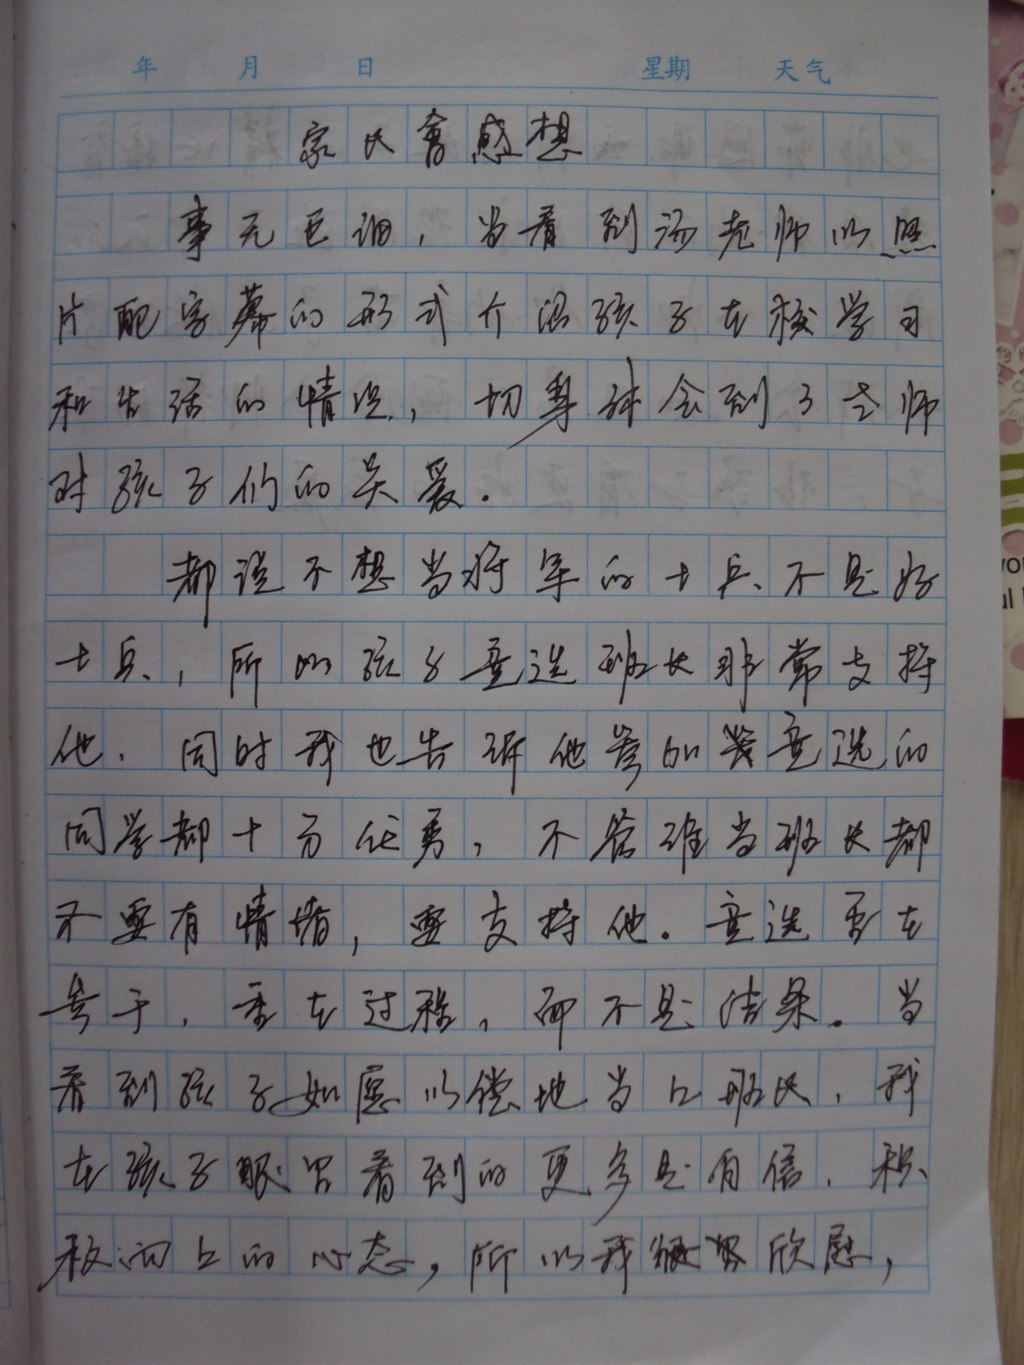 年 月 日 星期 天气
家长會感想
事无巨细，当看到汤老师以照
片配字幕的形式介绍孩子在校学习
和生活的情况，切身体会到了老师
对孩子们的关爱。
都说不想当将军的士兵不是好
士兵，所以孩子竞选班长非常支持
他。同时我也告诉他参加竞选的
同学都十分优秀，不管谁当班长都
不要有情绪，要支持他。竞选重在
参于，重在过程，而不是结果。当
看到孩子如愿以偿地当上班长，我
在孩子眼里看到的更多是自信，积
极向上的心态，所以我很欣慰，